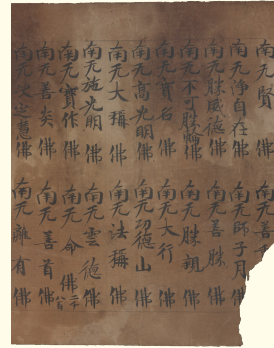 南无賢 南无善
南无淨自在佛 南无師子月佛
南无勝威德佛 南无善勝佛
南无不可勝輪佛 南无勝親佛
南无寶名佛 南无大行佛
南无高光明佛 南无功德山佛
南无大稱佛 南无法稱佛
南无施光明佛 南无雲德佛
南无寶作佛 南无命佛
南无善佛 南无善首佛
南无慧佛 南无離有佛